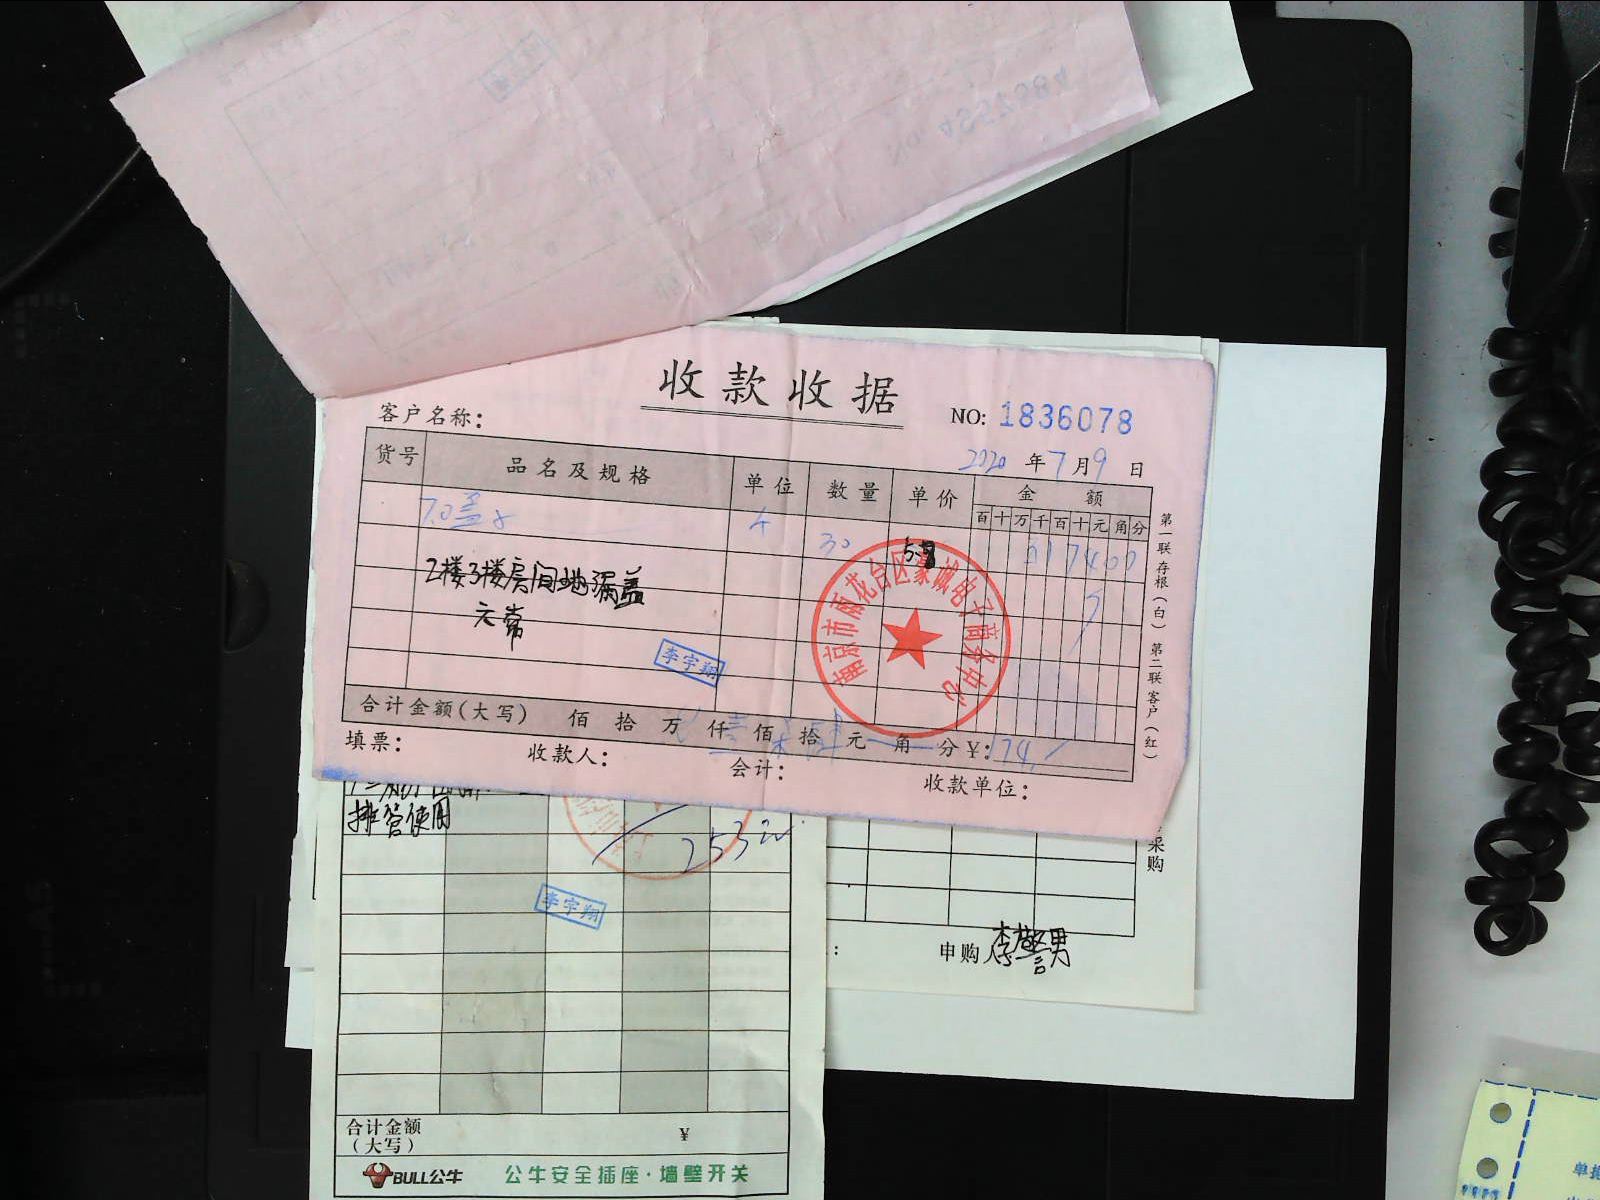 收款收据
客户名称：
NO: 1836078
2020 年 7 月 9 日
货号 品名及规格 单位 数量 单价 金额
百 十 万 千 百 十 元 角 分
7.0盖 30 5.8 17400
2楼3楼房间地漏盖
李宇翔
南京市雨花台区豪诚电子商务中心
合计金额(大写) 佰 拾 万 仟 壹 佰 柒 拾 肆 元 角 分 ¥: 174
填票： 收款人： 会计： 收款单位：
第一联存根(白) 第二联客户(红)
排管使用
253
李宇翔
采购
申购人
合计金额
(大写) ¥
BULL公牛 公牛安全插座·墙壁开关